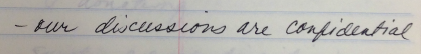 - our discussions are confidential